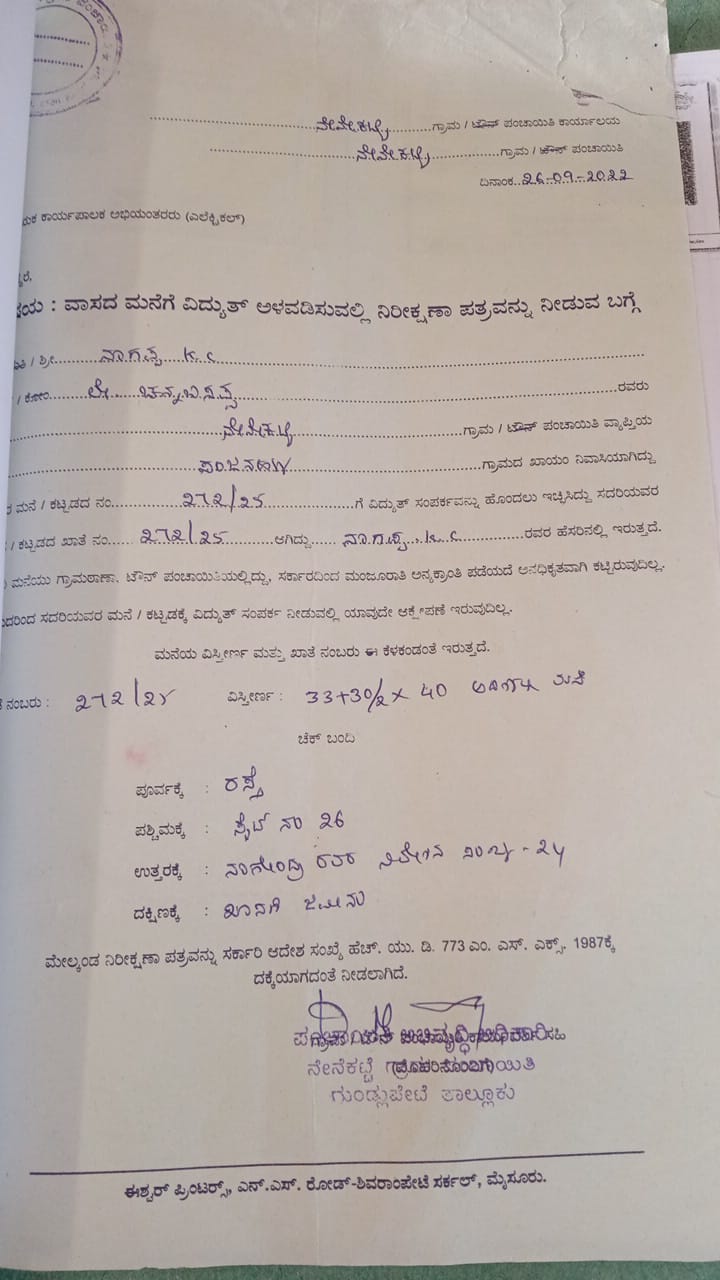 ನೇನೇಕಟ್ಟೆ ಗ್ರಾಮ / ಟೌನ್ ಪಂಚಾಯಿತಿ ಕಾರ್ಯಾಲಯ
ನೇನೇಕಟ್ಟೆ ಗ್ರಾಮ / ಟೌನ್ ಪಂಚಾಯಿತಿ
ದಿನಾಂಕ..26-09-2022
ಕಾರ್ಯಪಾಲಕ ಅಭಿಯಂತರರು (ಎಲೆಕ್ಟ್ರಿಕಲ್)
ರೆ,
ಯ : ವಾಸದ ಮನೆಗೆ ವಿದ್ಯುತ್ ಅಳವಡಿಸುವಲ್ಲಿ ನಿರೀಕ್ಷಣಾ ಪತ್ರವನ್ನು ನೀಡುವ ಬಗ್ಗೆ
/ ಶ್ರೀ ನಾಗಪ್ಪ K.C
/ ಕೋಂ ಲೇ ಚನ್ನಬಸಪ್ಪ ರವರು
ನೇನೇಕಟ್ಟೆ ಗ್ರಾಮ / ಟೌನ್ ಪಂಚಾಯಿತಿ ವ್ಯಾಪ್ತಿಯ
ಗ್ರಾಮದ ಖಾಯಂ ನಿವಾಸಿಯಾಗಿದ್ದು
ಮನೆ / ಕಟ್ಟಡದ ನಂ 272/25 ಗೆ ವಿದ್ಯುತ್ ಸಂಪರ್ಕವನ್ನು ಹೊಂದಲು ಇಚ್ಚಿಸಿದ್ದು ಸದರಿಯವರ
/ ಕಟ್ಟಡದ ಖಾತೆ ನಂ 272/25 ಆಗಿದ್ದು ನಾಗಪ್ಪ.K.C ರವರ ಹೆಸರಿನಲ್ಲಿ ಇರುತ್ತದೆ.
ಮನೆಯು ಗ್ರಾಮಠಾಣಾ, ಟೌನ್ ಪಂಚಾಯಿತಿಯಲ್ಲಿದ್ದು, ಸರ್ಕಾರದಿಂದ ಮಂಜೂರಾತಿ ಅನ್ಯಕ್ರಾಂತಿ ಪಡೆಯದೆ ಅನಧಿಕೃತವಾಗಿ ಕಟ್ಟಿರುವುದಿಲ್ಲ.
ದರಿಂದ ಸದರಿಯವರ ಮನೆ / ಕಟ್ಟಡಕ್ಕೆ ವಿದ್ಯುತ್ ಸಂಪರ್ಕ ನೀಡುವಲ್ಲಿ ಯಾವುದೇ ಆಕ್ಷೇಪಣೆ ಇರುವುದಿಲ್ಲ.
ಮನೆಯ ವಿಸ್ತೀರ್ಣ ಮತ್ತು ಖಾತೆ ನಂಬರು ಈ ಕೆಳಕಂಡಂತೆ ಇರುತ್ತದೆ.
ನಂಬರು : 272/25 ವಿಸ್ತೀರ್ಣ : 33+30/2 x 40 ಮನೆ
ಚೆಕ್ ಬಂದಿ
ಪೂರ್ವಕ್ಕೆ : ರಸ್ತೆ
ಪಶ್ಚಿಮಕ್ಕೆ : ಸೈಟ್ ನಂ 26
ಉತ್ತರಕ್ಕೆ : ನಾಗೇಂದ್ರ ರವರ ನಿವೇಶನ ನಂಬರ್ - 24
ದಕ್ಷಿಣಕ್ಕೆ : ಖಾಸಗಿ ಜಮೀನು
ಮೇಲ್ಕಂಡ ನಿರೀಕ್ಷಣಾ ಪತ್ರವನ್ನು ಸರ್ಕಾರಿ ಆದೇಶ ಸಂಖ್ಯೆ ಹೆಚ್. ಯು. ಡಿ. 773 ಎಂ. ಎಸ್. ಎಕ್ಸ್. 1987ಕ್ಕೆ
ದಕ್ಕೆಯಾಗದಂತೆ ನೀಡಲಾಗಿದೆ.
ನೇನೆಕಟ್ಟೆ
ಗುಂಡ್ಲುಪೇಟೆ ತಾಲ್ಲೂಕು
ಈಶ್ವರ್ ಪ್ರಿಂಟರ್ಸ್, ಎನ್.ಎಸ್. ರೋಡ್-ಶಿವರಾಂಪೇಟೆ ಸರ್ಕಲ್, ಮೈಸೂರು.